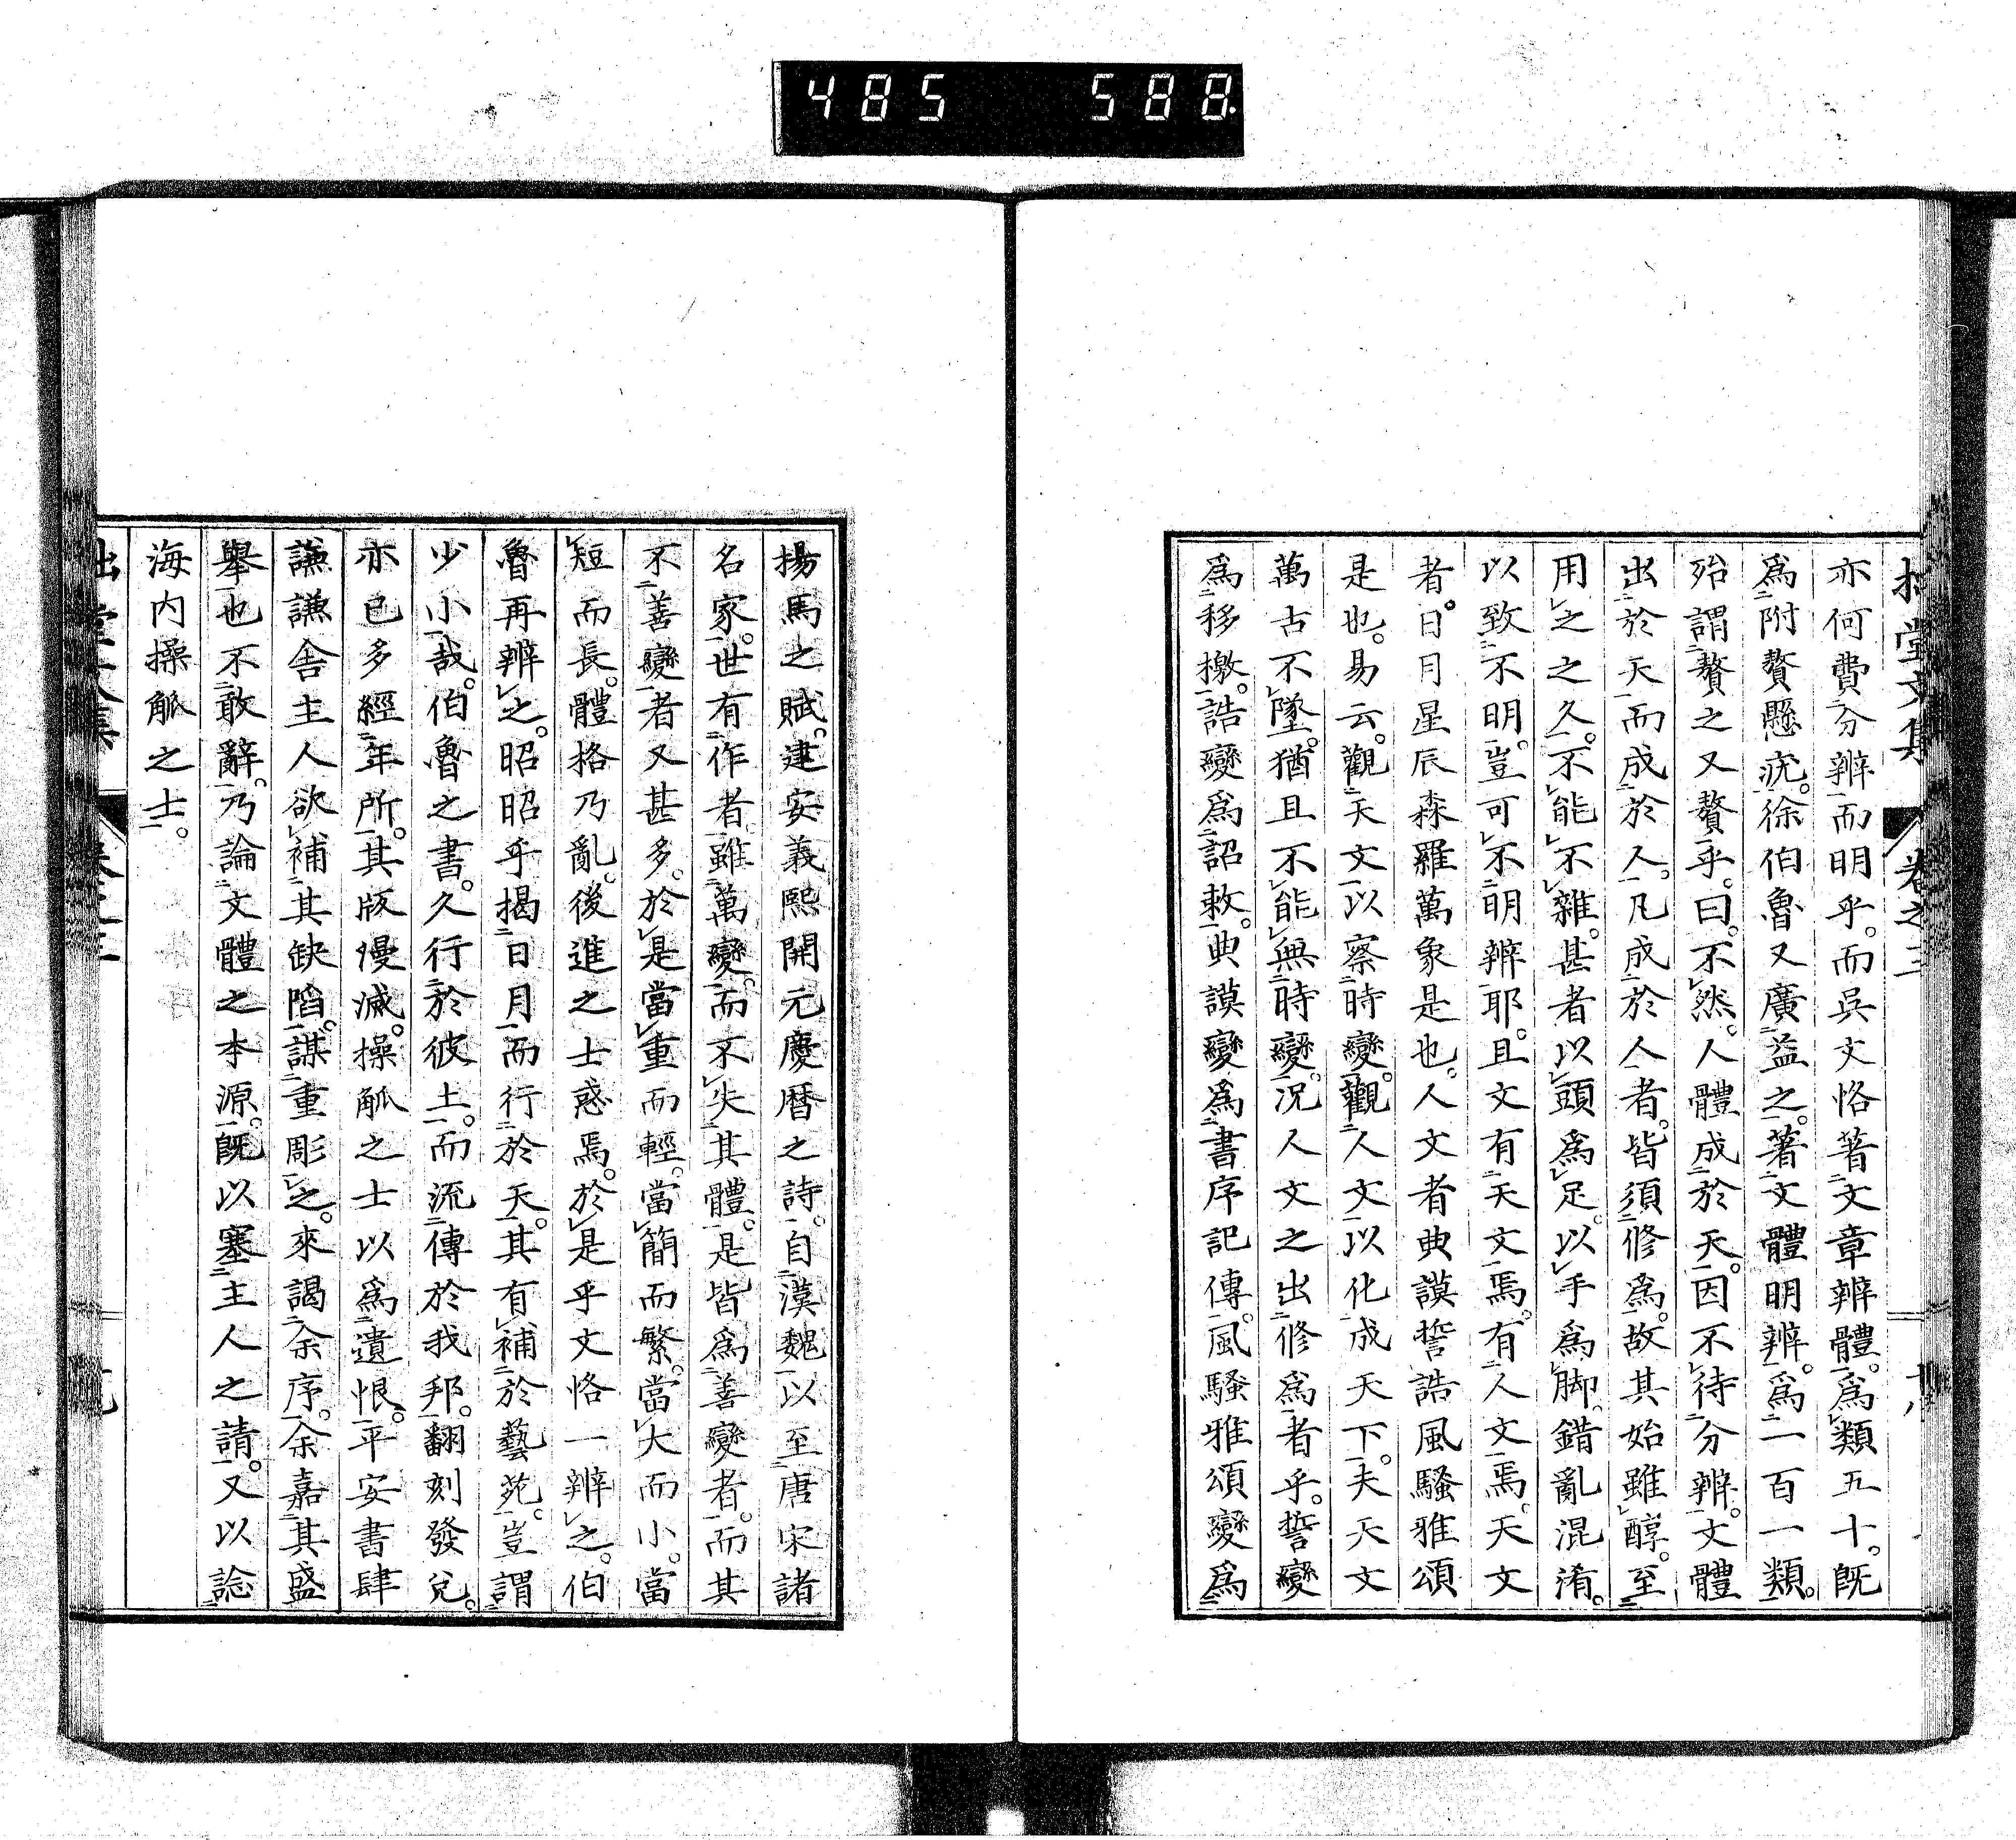 485 588.
拙堂文集 卷之三 十八
亦何費分辨而明乎。而吳文恪著文章辨體。爲類五十。既
爲附贅懸疣。徐伯魯又廣益之。著文體明辨。爲一百一類。
殆謂贅之又贅乎。曰。不然。人體成於天。因不待分辨。文體
出於天而成於人。凡成於人者。皆須修爲。故其始雖醇。至
用之之久。不能不雜。甚者以頭爲足。以手爲脚。錯亂混淆。
以致不明。豈可不明辨耶。且文有天文焉。有人文焉。天文
者。日月星辰森羅萬象是也。人文者典謨誓誥風騷雅頌
是也。易云。觀天文以察時變。觀人文以化成天下。夫天文
萬古不墜。猶且不能無時變。況人文之出修爲者乎。誓變
爲移檄。誥變爲詔敕。典謨變爲書序記傳。風騷雅頌變爲
揚馬之賦。建安義熙開元慶曆之詩。自漢魏以至唐宋諸
名家。世有作者。雖萬變。而不失其體。是皆爲善變者。而其
不善變者又甚多。於是當重而輕。當簡而繁。當大而小。當
短而長。體格乃亂。後進之士惑焉。於是乎文恪一辨之。伯
魯再辨之。昭昭乎揭日月而行於天。其有補於藝苑。豈謂
少小哉。伯魯之書。久行於彼土。而流傳於我邦。翻刻發兌。
亦已多經年所。其版慢滅。操觚之士以爲遺恨。平安書肆
謙謙舍主人欲補其缺陷。謀重彫之。來謁余序。余嘉其盛
舉也不敢辭。乃論文體之本源。既以塞主人之請。又以諗
海内操觚之士。
拙堂文集 卷之三